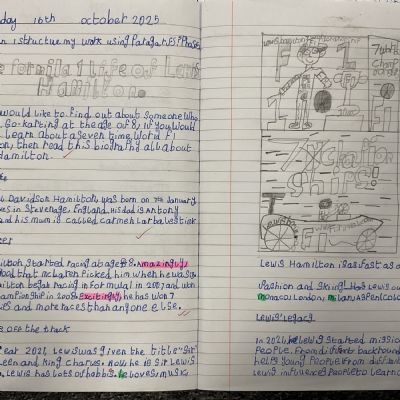 day 16th october 2025
n istructure my work using Paragar
formila 1 life of Lew
Hamilton.
would like to find out about someone who
Go-karting at the age of 8, if you would
Learn about a seven time World F1
on, then read this about
Hamilton.
Davidson Hamilton was born on 7th January
in Stevenage, England. His dad is Antony
and his mum is called carmen Larbalestier
milton started racing at age 8. Amazingly,
ool that mcLaren Picked him when he was
ilton began racing in Formula 1 in 2007 and won
hampionship in 2008. Excitingly, he has won 7
s and more races than anyone else.
e off the track
Year 2021, Lewis was given the title "Sir"
een and King Charles. Now he is Sir Lewis
. Lewis has lots of hobbis. he loves, music
F1
7 World
Champ
7X Chapion
ships!
Lewis Hamilton is as fast as a
Fashion and Skiing. Has Lewis ou
monaco, London, milan, Aspen Colo
Lewis' Legacy
In 2021, he Lewis started missio
People. From diffrent backroun
helps young People From diffrent
Lewis influences People to learn